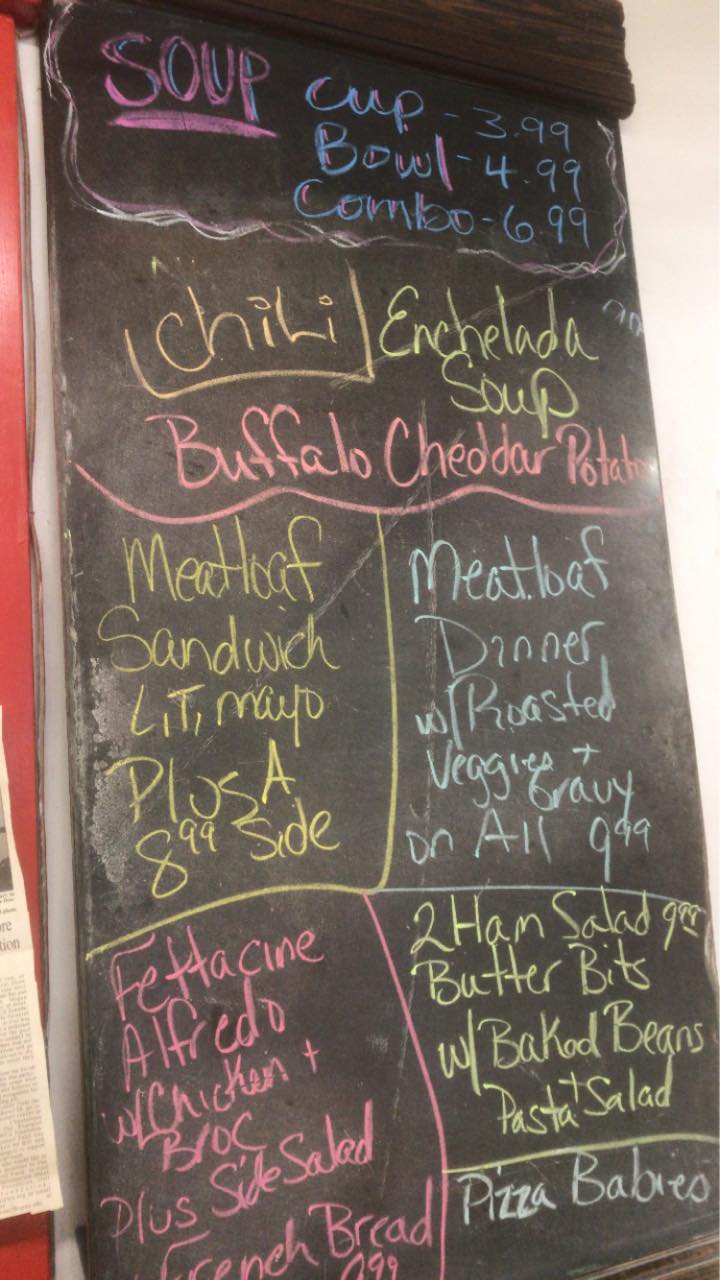 SOUP
Cup - 3.99
Bowl - 4.99
Combo - 6.99
Chili
Enchelada
Soup
Buffalo Cheddar Potato
Meatloaf
Sandwich
L,T, mayo
Plus A
8.99 Side
Meatloaf
Dinner
w/Roasted
Veggies +
Gravy
on All 9.99
Fettacine
Alfredo
w/Chicken +
Broc
Plus Side Salad
French Bread
9.99
2 Ham Salad 9.99
Butter Bits
w/Baked Beans
+
Pasta Salad
Pizza Babies